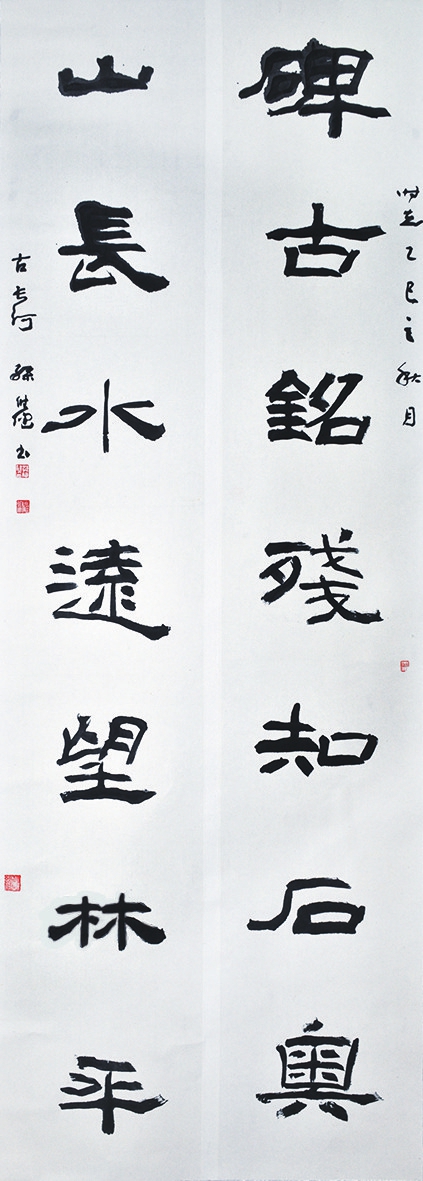 时在乙巳之秋月
碑古銘殘知石奧
山長水遠望林平
古长河 书